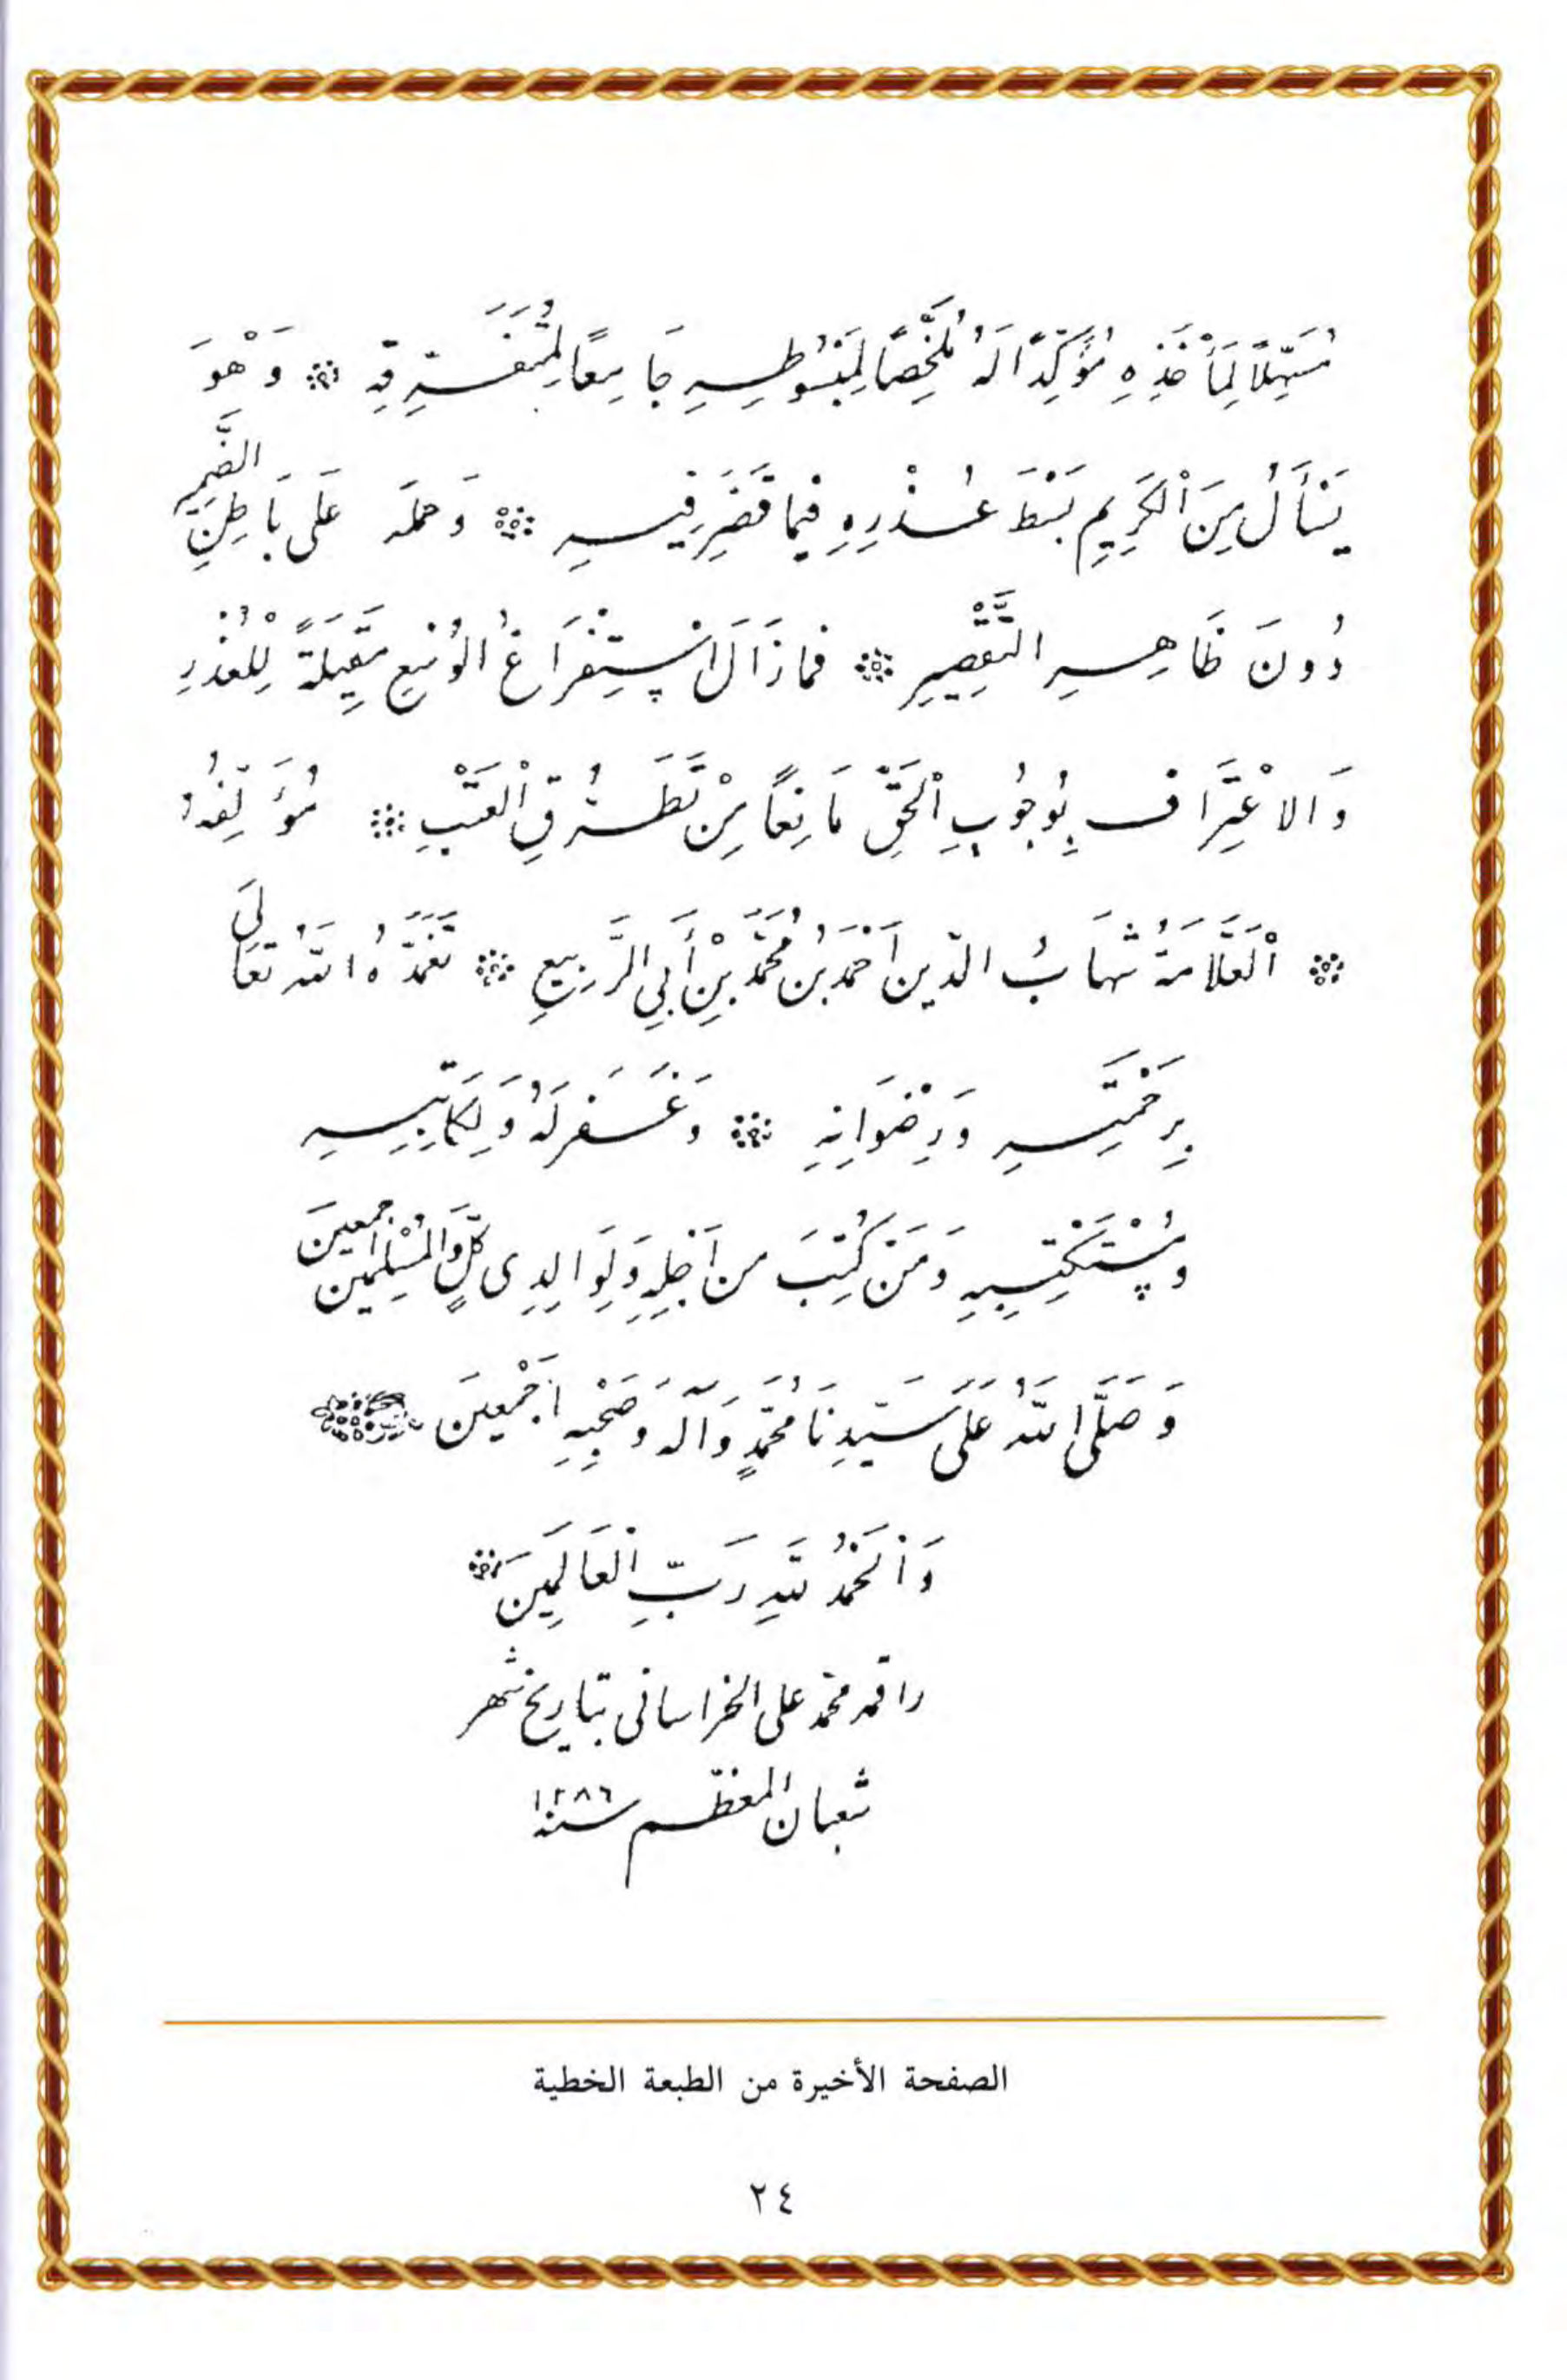 مُسَهِّلًا لِمَأْخَذِهِ مُؤَكِّدًا لَهُ مُلَخِّصًا لِمَبْسُوطِهِ جَامِعًا لِمُتَفَرِّقِهِ ۞ وَهْوَ
يَسْأَلُ مِنَ الْكَرِيمِ بَسْطَ عُذْرِهِ فِيمَا قَصَّرَ فِيهِ ۞ وَحَمْلَهُ عَلَى بَاطِنِ الضَّمِيرِ
دُونَ ظَاهِرِ التَّقْصِيرِ ۞ فَمَا زَالَ اسْتِفْرَاغُ الْوُسْعِ مُقِيلَةً لِلْعُذْرِ
وَالاعْتِرَاف بِوُجُوبِ الْحَقِّ مَانِعًا مِنْ تَطَرُّقِ الْعَتْبِ ۞ مُؤَلِّفُهُ
۞ اَلْعَلَّامَةُ شِهَابُ الدّين أَحْمَدُ بْنُ مُحَمَّدِ بْنِ أَبِي الرَّبِيعِ ۞ تَغَمَّدَهُ اللهُ تَعَالَى
بِرَحْمَتِهِ وَرِضْوَانِهِ ۞ وَغَفَرَ لَهُ وَلِكَاتِبِهِ
وَمُسْتَكْتِبِهِ وَمَنْ كُتِبَ من أَجْلِهِ وَلِوَالِدِى كُلٍّ وَالْمُسْلِمِين أجمعين
وَصَلَّى اللهُ عَلَى سَيِّدِنَا مُحَمَّدٍ وَآلِهِ وَصَحْبِهِ أَجْمَعِين
وَالْحَمْدُ لله رَبِّ الْعَالَمِينَ ۞
راقمه محمّد على الخراسانى بتاريخ شهر
شعبان المعظّم سنة ١٢٨٦
الصفحة الأخيرة من الطبعة الخطية
٢٤